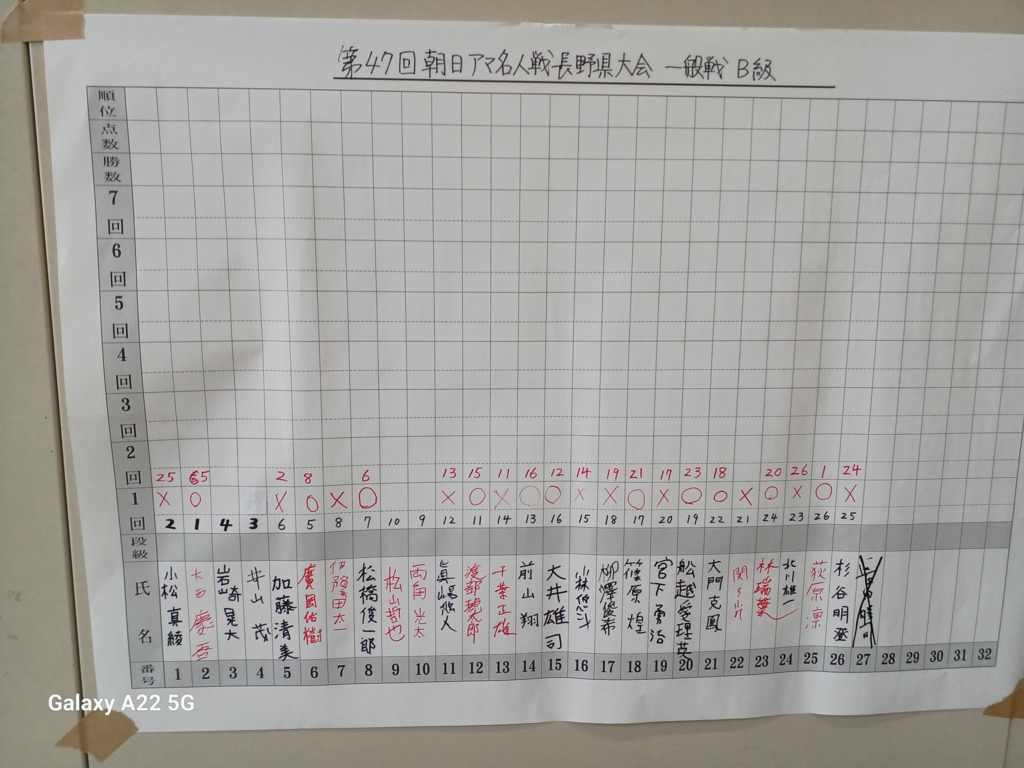 第47回朝日アマ名人戦長野県大会 一般戦 B級
順位
点数
勝数
7回
6回
5回
4回
3回
2回 25 65 2 8 6 13 15 11 16 12 14 19 21 17 23 18 20 26 1 24
1回 × ○ × ○ × ○ × ○ × ○ ○ × × ○ × ○ ○ × ○ × ○ ×
2 1 4 3 6 5 8 7 10 9 12 11 14 13 16 15 18 17 20 19 22 21 24 23 26 25
段級
氏名 小松真綾 大西慶吾 岩崎晃大 井山茂 加藤清美 廣國佑樹 太一 松橋俊一郎 松山哲也 両角光太 眞嶋悠人 渡部琥太郎 千葉正雄 前山翔 大井雄司 小林悠斗 柳澤俊希 篠原煌 宮下勇治 船越愛理英 大門克鳳 関 林瑞葉 北川雄一 荻原凛 杉谷明
番号 1 2 3 4 5 6 7 8 9 10 11 12 13 14 15 16 17 18 19 20 21 22 23 24 25 26 27 28 29 30 31 32
Galaxy A22 5G